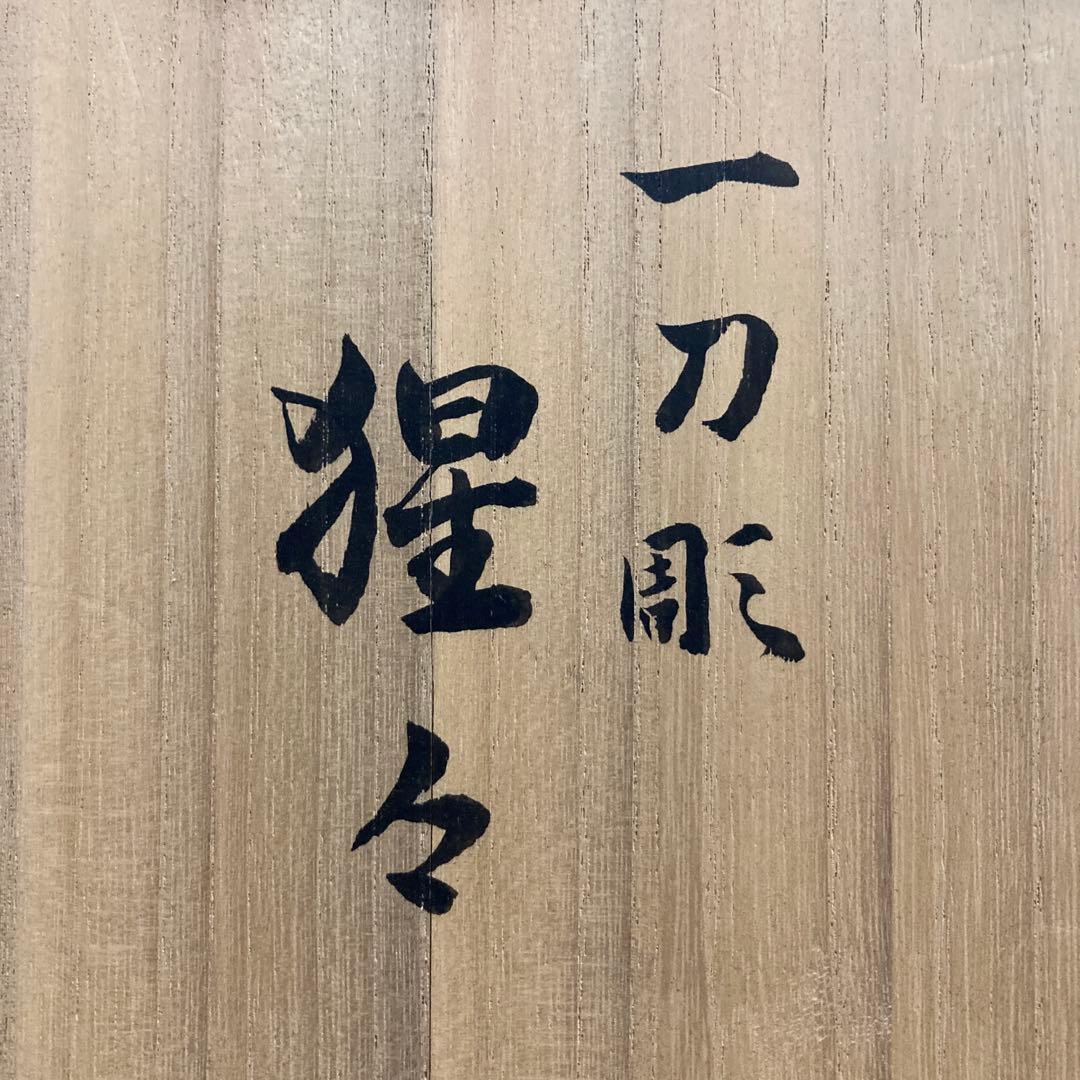 一刀彫
猩々